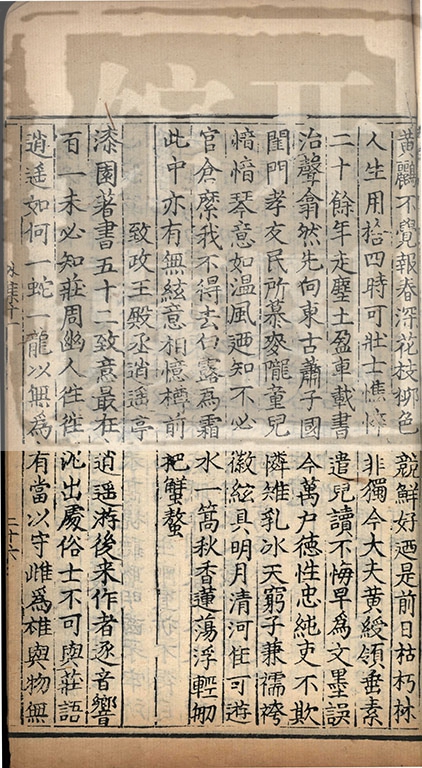 黄鸝不覺報春深花枝柳色競鮮好迺是前日枯朽林
人生用捨四時可壯士憔悴非獨今大夫黄綬領垂素
二十餘年走壓土盈車載書遣兒讀不悔早為文墨誤
治聲翕然先向東古蕭子國今萬户徳性忠純吏不欺
閨門孝友民所慕麥隴童兒憐雉乳冰天窮子兼襦袴
愔愔琴意如温風迺知不必徽絃具明月清河佳可遊
官倉縻我不得去白露為霜水一篙秋香蓮蕩浮輕舠
此中亦有無絃意相憶樽前把蟹螯
致政王殿丞逍遥亭
漆園著書五十二致意最在逍遥游後来作者逐音響
百一未必知莊周幽人往往沈出處俗士不可與莊語
逍遥如何一蛇一龍以無為有當以守雌為雄與物無
外集十一
二十六